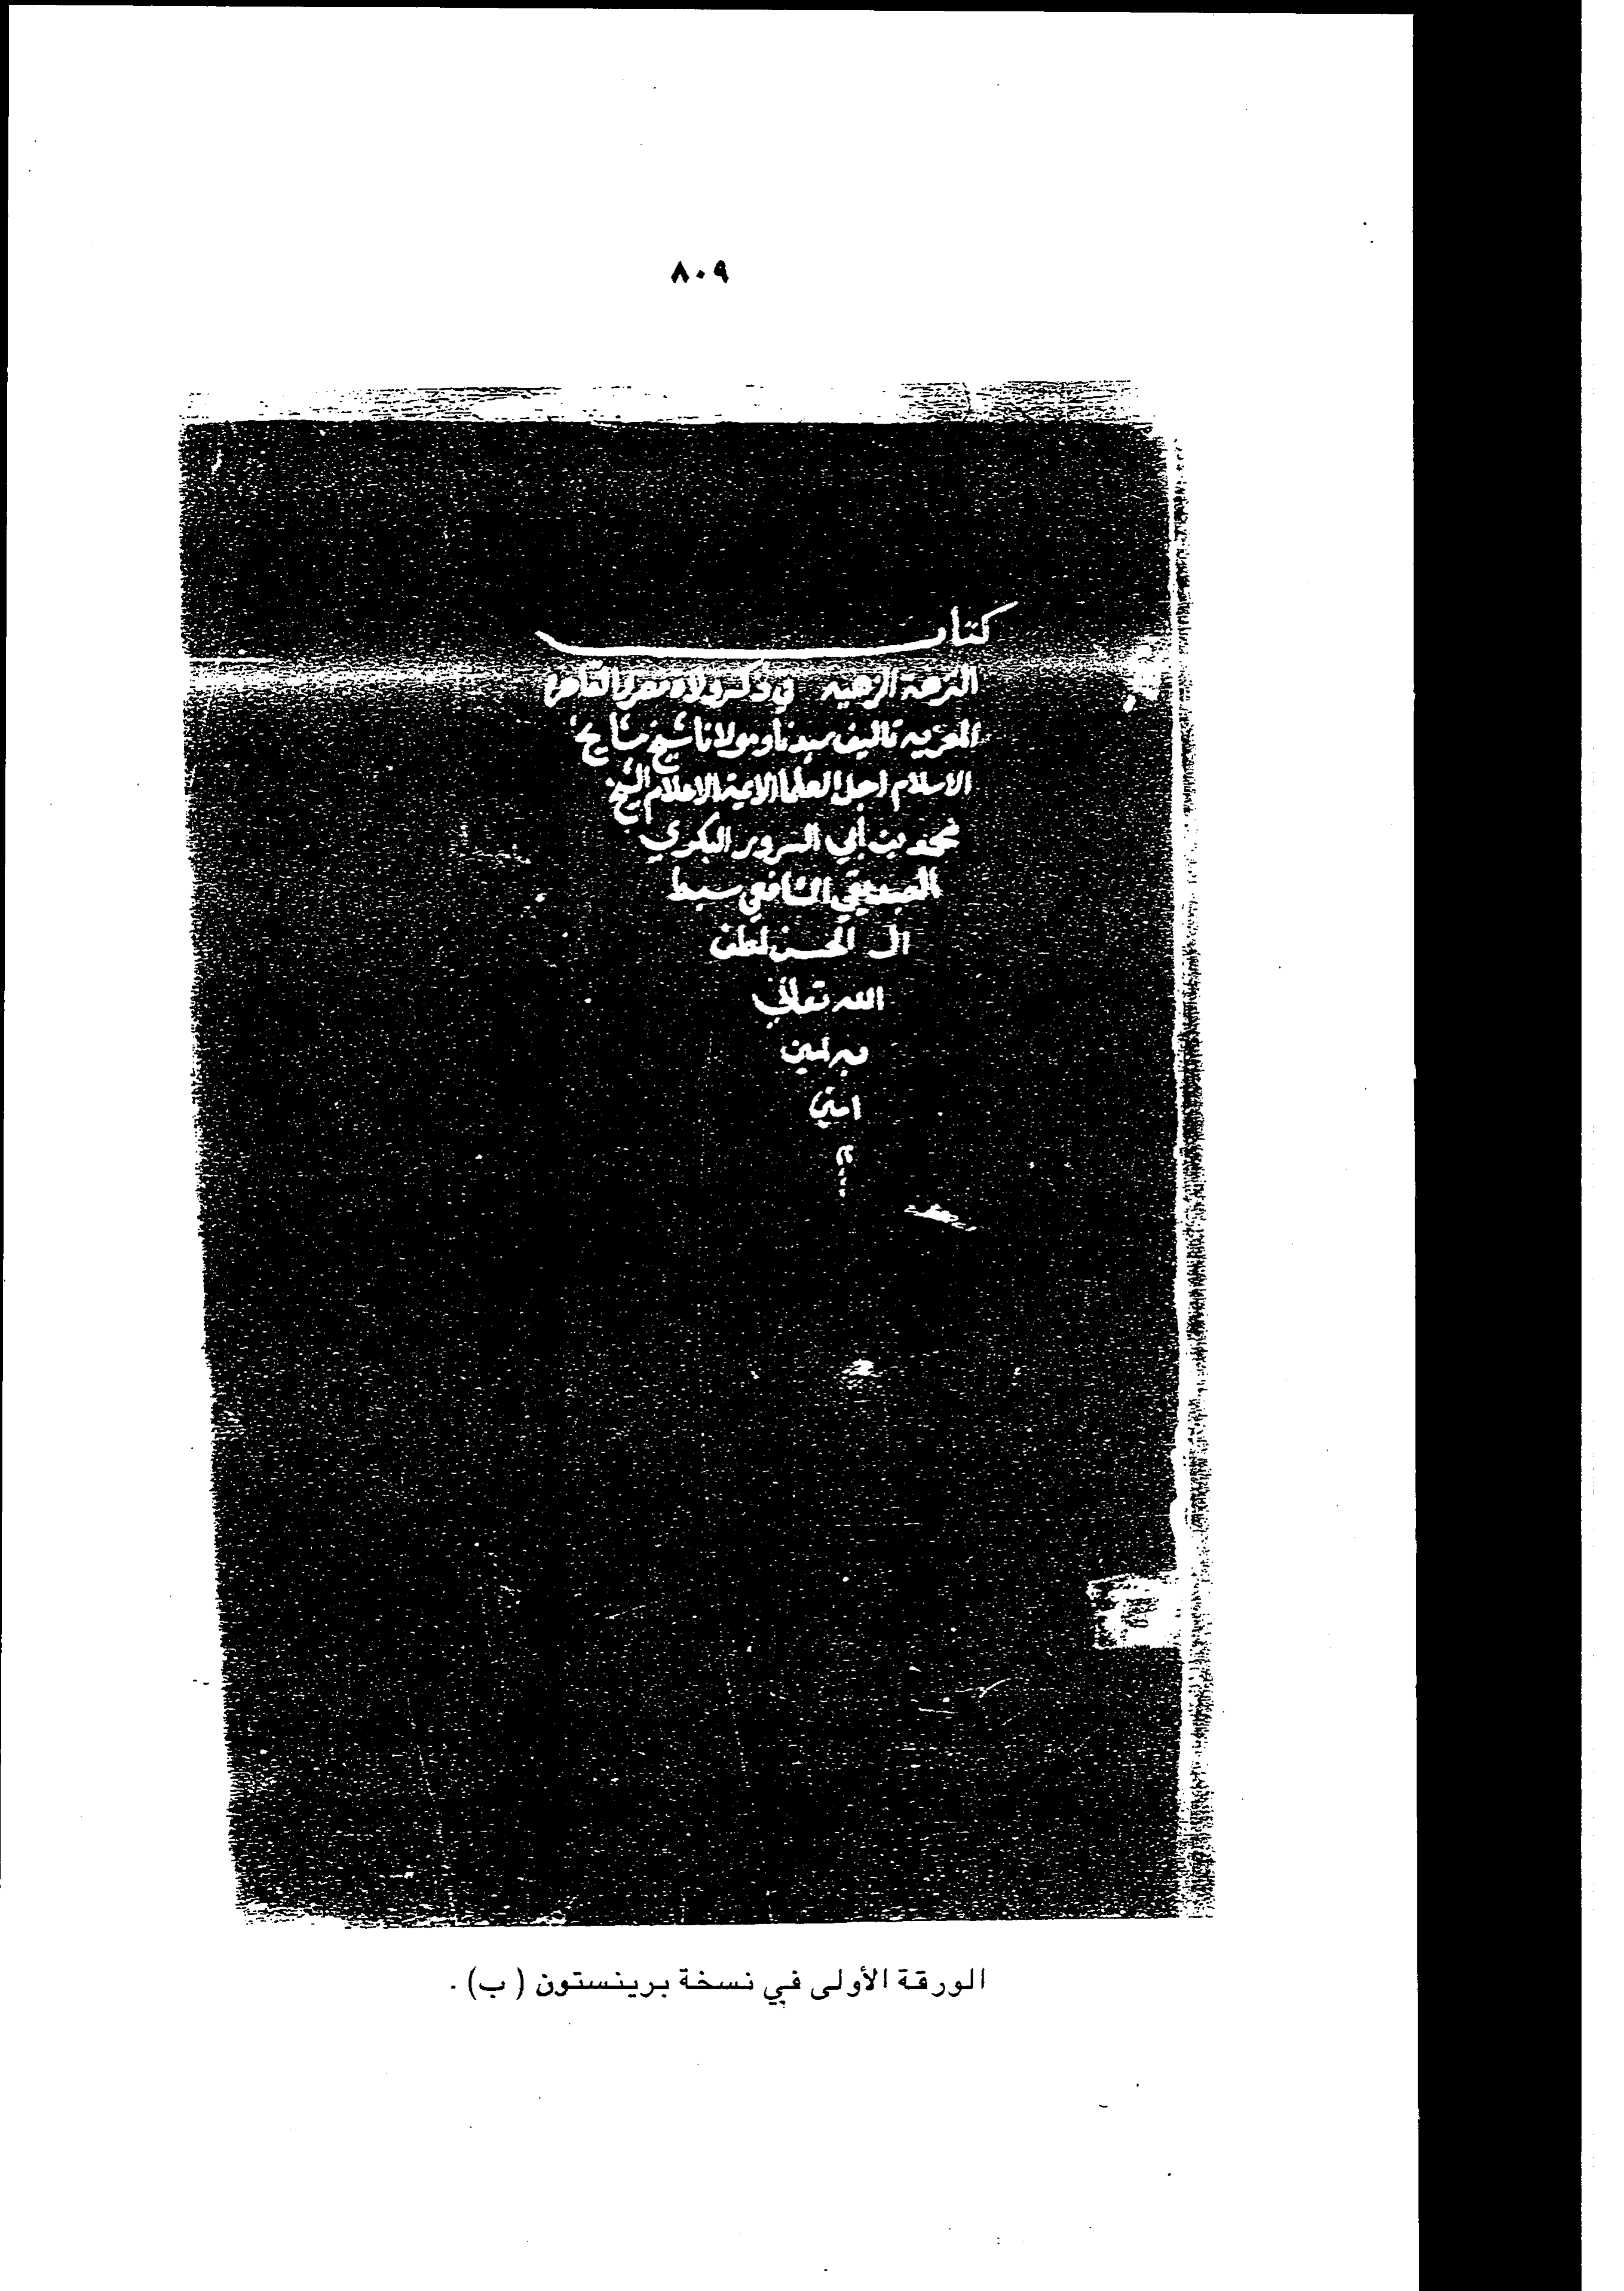 ٨٠٩
كتاب
النزهة الزهيه في ذكر ولاة مصر والقاهرة
المعزيه تاليف سيدنا ومولانا شيخ مشايخ
الاسلام اجل العلما الايمة الاعلام الشيخ
محمد بن أبي السرور البكري
الصديقي الشافعي سبط
ال الحسن لطف
الله تعالي
به امين
امين
الورقة الأولى في نسخة برينستون ( ب ) .